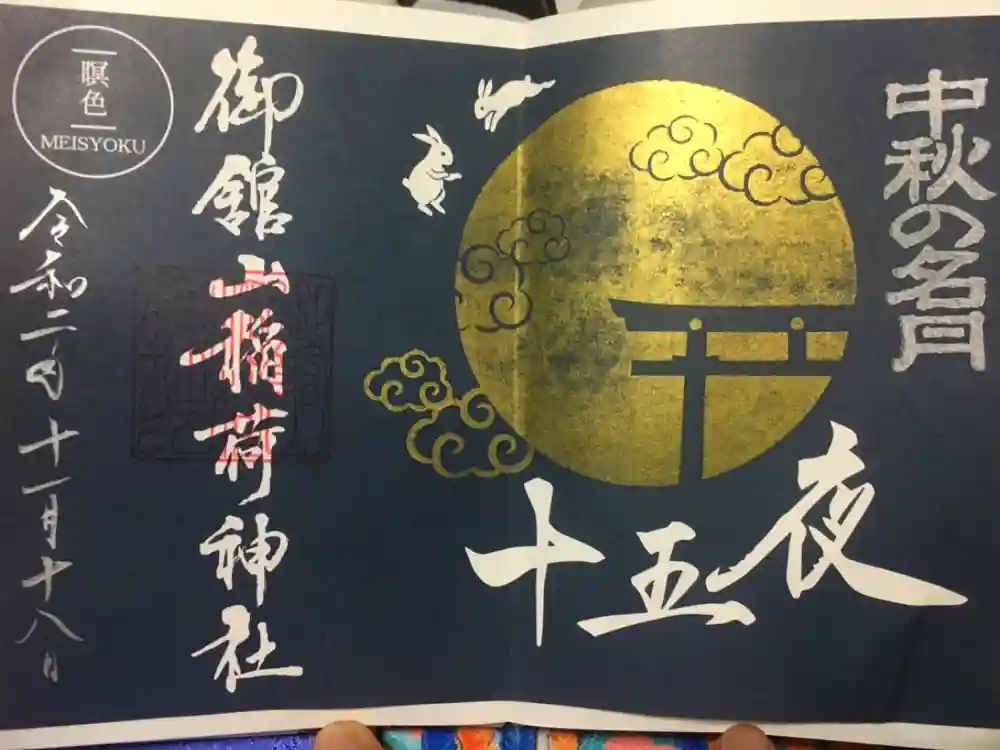 中秋の名月
十五夜
御館山稲荷神社
瞑色
MEISYOKU
令和二年十一月十八日